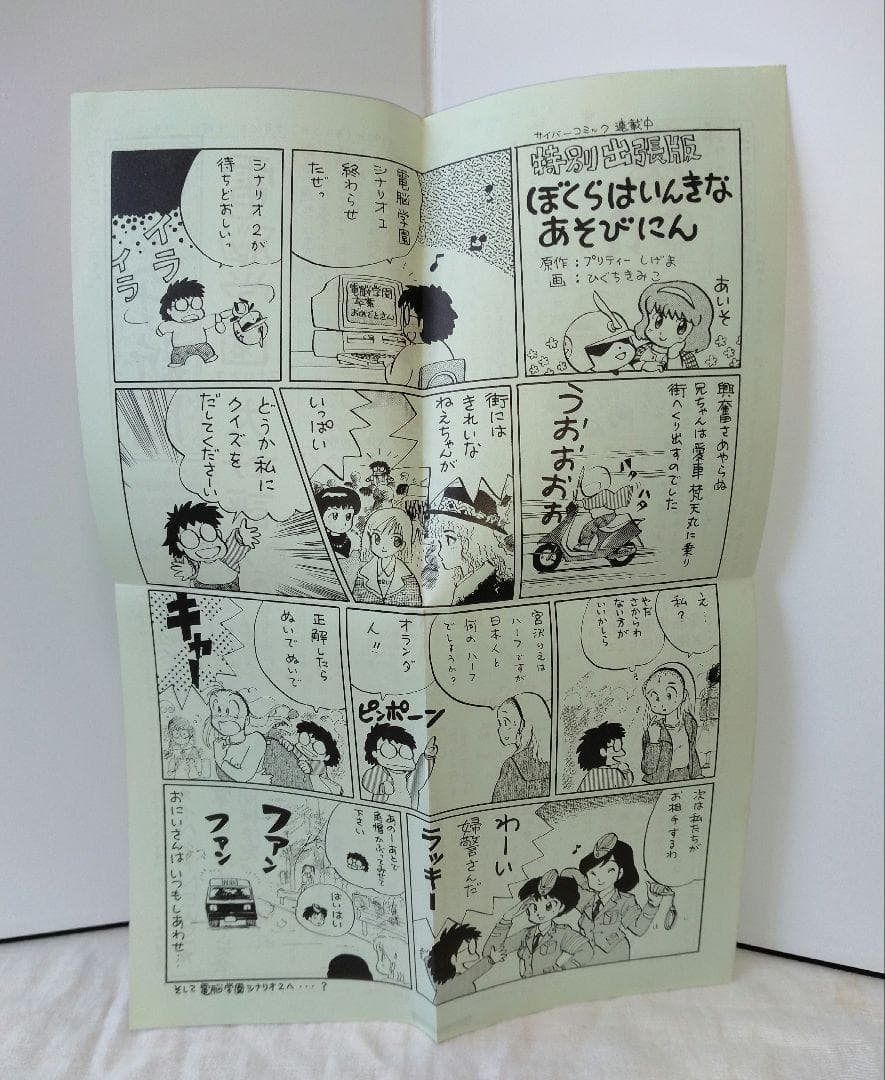 サイバーコミック連載中
特別出張版
ぼくらはいんきな
あそびにん
原作:プリティーしげま
画:ひぐちきみこ
あいそ
電脳学園
シナリオ1
終わらせ
たぜっ
電脳学園
卒業
おめでとさん
シナリオ2が
待ちどおしいっ
イライラ
興奮さめやらぬ
兄ちゃんは愛車梵天丸に乗り
街へくり出すのでした
うおぉぉぉぉ
パタ
パタ
街には
きれいな
ねえちゃんが
いっぱい
どうか私に
クイズを
だしてくださーい
え…
私?
やだ
さからわ
ない方が
いいかしら
宮沢りえは
ハーフですが
日本人と
何のハーフ
でしょうか?
オランダ
人!!
ピンポーン
正解したら
ぬいでぬいで
キャー
次は私たちが
お相手するわ
わーい
婦警さんだ
ラッキー
あのーあとで
下さい
はいはい
ファン
ファン
おにいさんはいつもしあわせ…
そして電脳学園シナリオ2へ…?